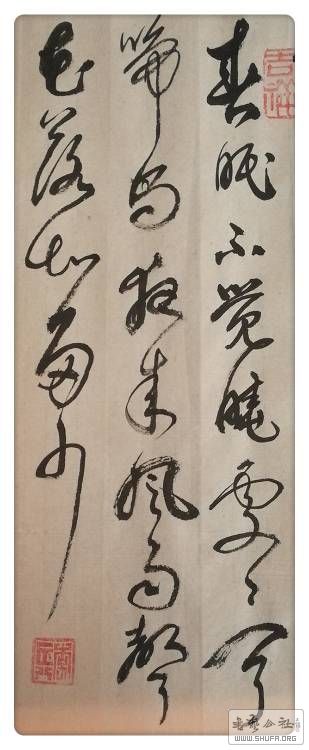 吉祥
春眠不觉晓处々闻
啼鸟夜来风雨聲
花落知多少
书艺公社
WWW.SHUFA.ORG